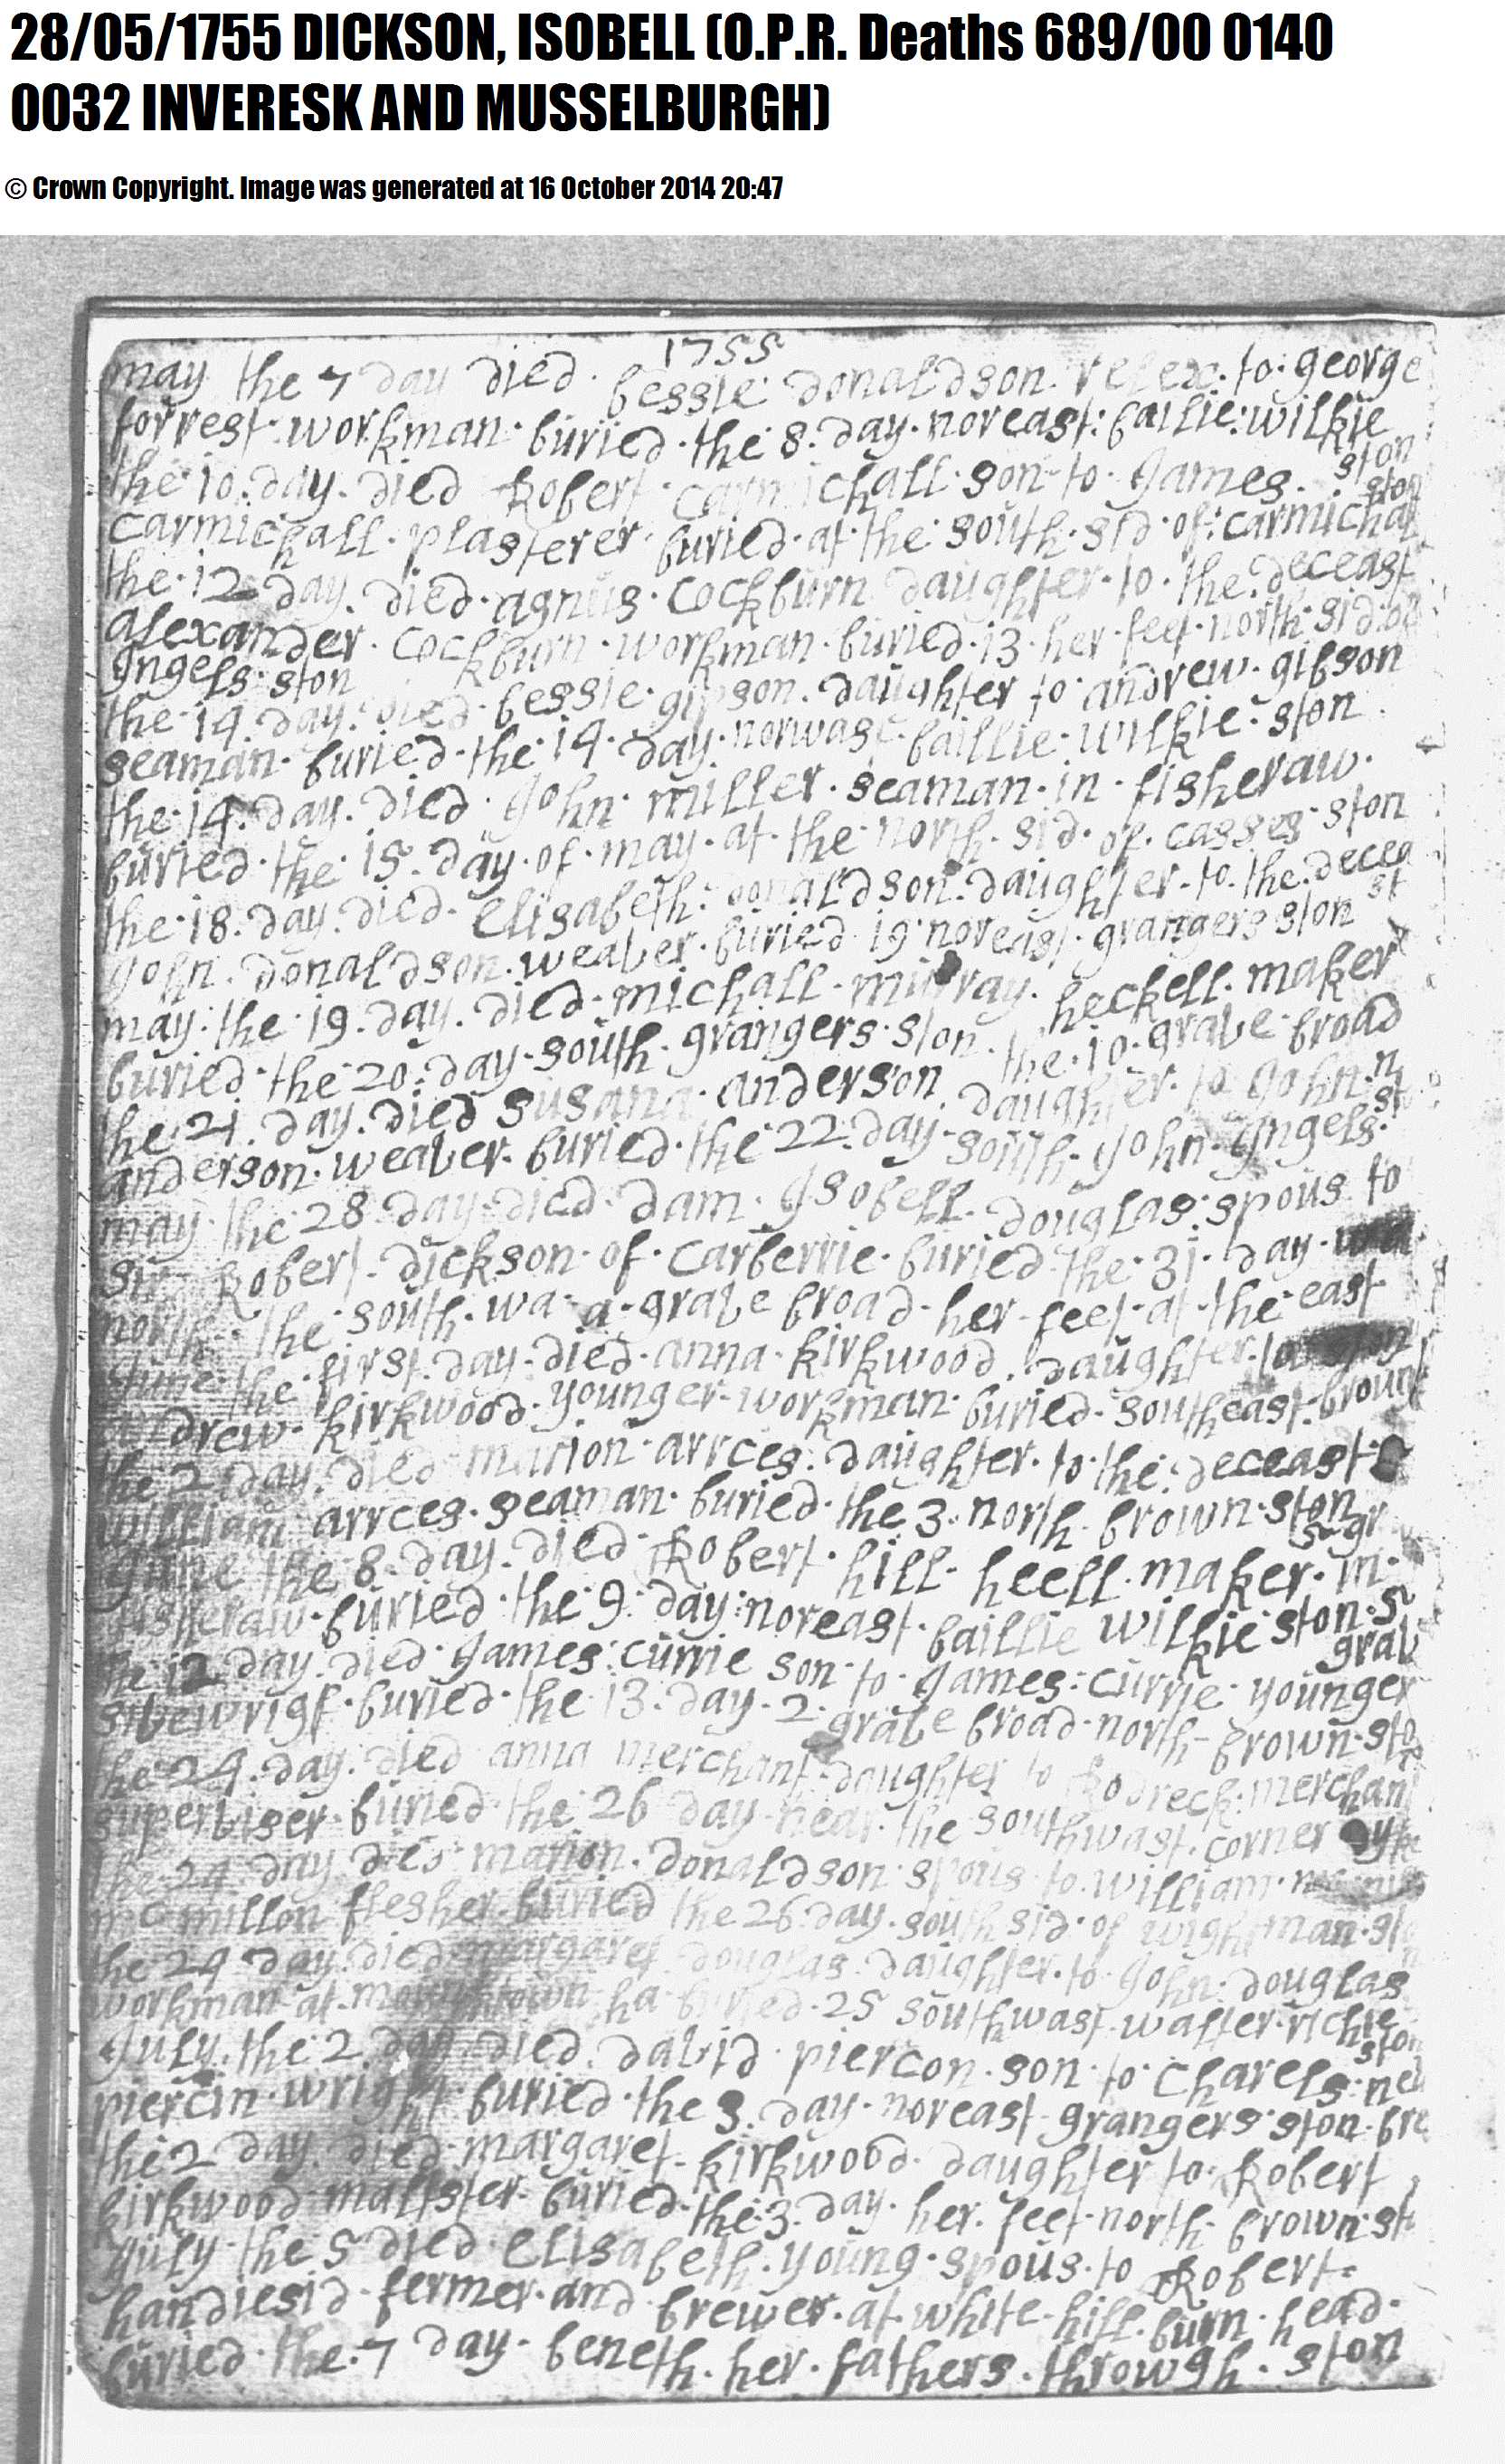 28/05/1755 DICKSON, ISOBELL (O.P.R. Deaths 689/00 0140
0032 INVERESK AND MUSSELBURGH)
© Crown Copyright. Image was generated at 16 October 2014 20:47
1755
may the 7 day died bessie donaldson relex to george
forrest workman buried the 8 day noreast bailie wilkie
ston
the 10 day died Robert carmichall son to James
ston
carmichall plasterer buried at the south sid of carmichal
the 12 day died agnus cockburn daughter to the deceast
alexander cockburn workman buried 13 her feet north sid of
Ingels ston
the 14 day died bessie gipson daughter to andrew gibson
seaman buried the 14 day norwast baillie wilkie ston
the 14 day died John miller seaman in fisheraw
buried the 15 day of may at the north sid of casses ston
the 18 day died elisabeth donaldson daughter to the decea
st
John donaldson weaver buried 19 noreast grangers ston
may the 19 day died michall murray heckell maker
buried the 20 day south grangers ston the 10 grave broad
the 21 day died susana anderson daughter to John
anderson weaver buried the 22 day south John Ingels st
may the 28 day died dam Isobell douglas spous to
sir Robert dickson of carberrie buried the 31 day
north the south wa a grave broad her feet at the east
June the first day died anna kirkwood daughter to
andrew kirkwood younger workman buried southeast broun
the 2 day died marion arrces daughter to the deceast
william arrces seaman buried the 3 north brown ston
June the 8 day died Robert hill heell maker in
fisheraw buried the 9 day noreast baillie wilkie ston 5
grav
the 12 day died James currie son to James currie younger
sivewrigt buried the 13 day 2 grave broad north brown sto
the 24 day died anna merchant daughter to Rodreck merchant
superviser buried the 26 day near the southwast corner
the 24 day died marion donaldson spous to william
mc millon flesher buried the 26 day south sid of wightman sto
the 24 day died margaret douglas daughter to John douglas
workman at ha buried 25 southwast walter richie
ston
July the 2 day died david piercon son to Charels
piercin wright buried the 3 day noreast grangers ston bre
the 2 day died margaret kirkwood daughter to Robert
kirkwood maltster buried the 3 day her feet north brown st
July the 5 died elisabeth young spous to Robert
handiesid fermer and brewer at white hill burn head
buried the 7 day beneth her fathers through ston